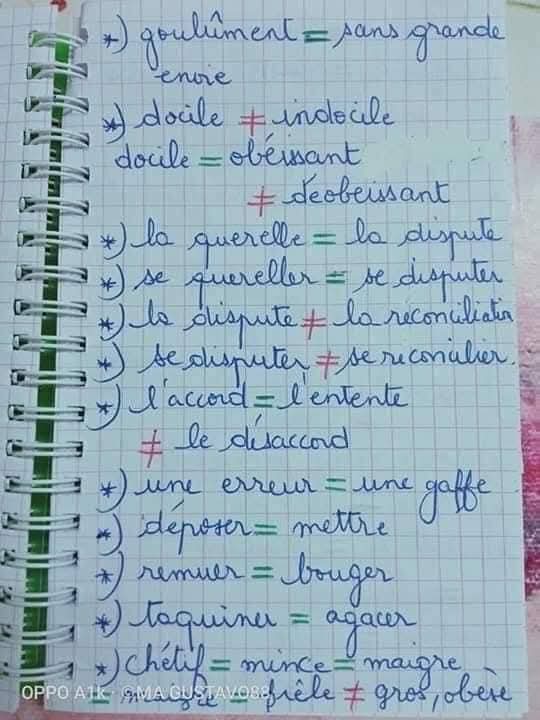 *) goulûment = sans grande
envie
*) docile ≠ indocile
docile = obéissant
≠ déobeissant
*) la querelle = la dispute
*) se quereller = se disputer
*) la dispute ≠ la réconciliation
*) se disputer ≠ se réconcilier.
*) l'accord = l'entente
≠ le désaccord
*) une erreur = une gaffe
*) déposer = mettre
*) remuer = bouger
*) taquiner = agacer
*) chétif = mince = maigre
= = frêle ≠ gros, obèse
OPPO A1k · ©MA GUSTAVO88